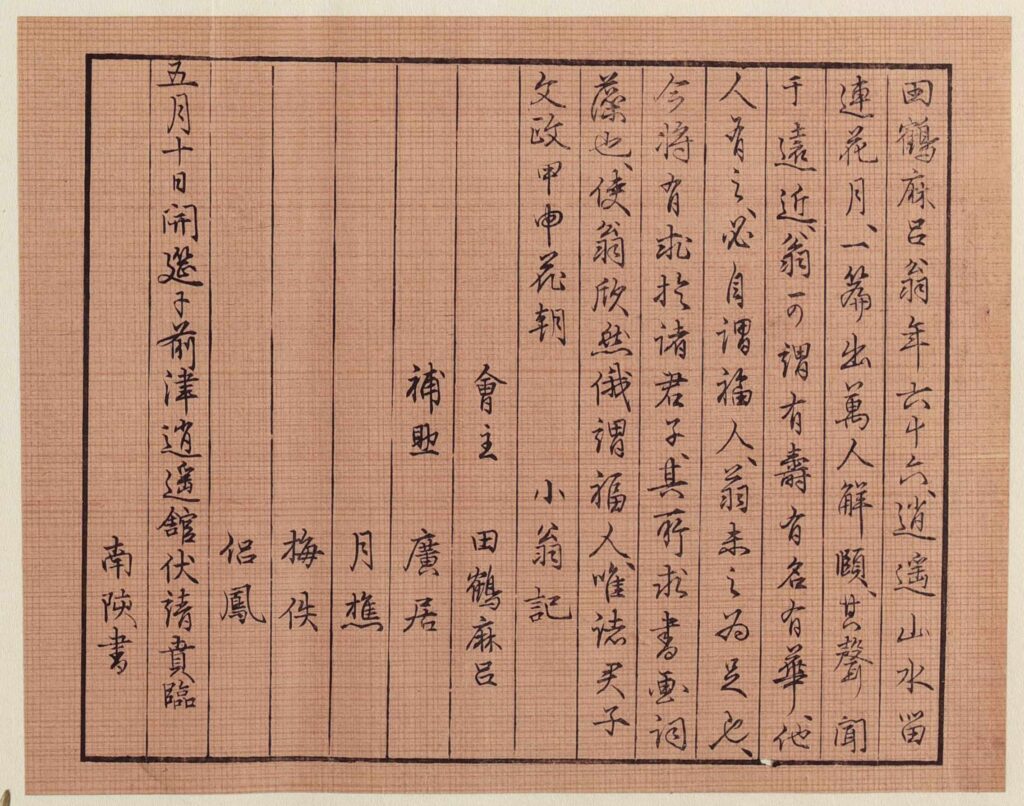 田鶴麻呂翁年六十六、逍遥山水留
連花月、一篇出萬人解頤、其聲聞
于遠近、翁可謂有壽有名有華、他
人有之、必自謂福人、翁未之為足也、
今将有求於諸君子、其所求書画詞
藻也、使翁欣然俄謂福人、唯諸君子
文政甲申花朝　小翁記
會主　田鶴麻呂
補助　廣居
月樵
梅佚
侶鳳
五月十日開筵于前津逍遥舘伏請貴臨
南陝書